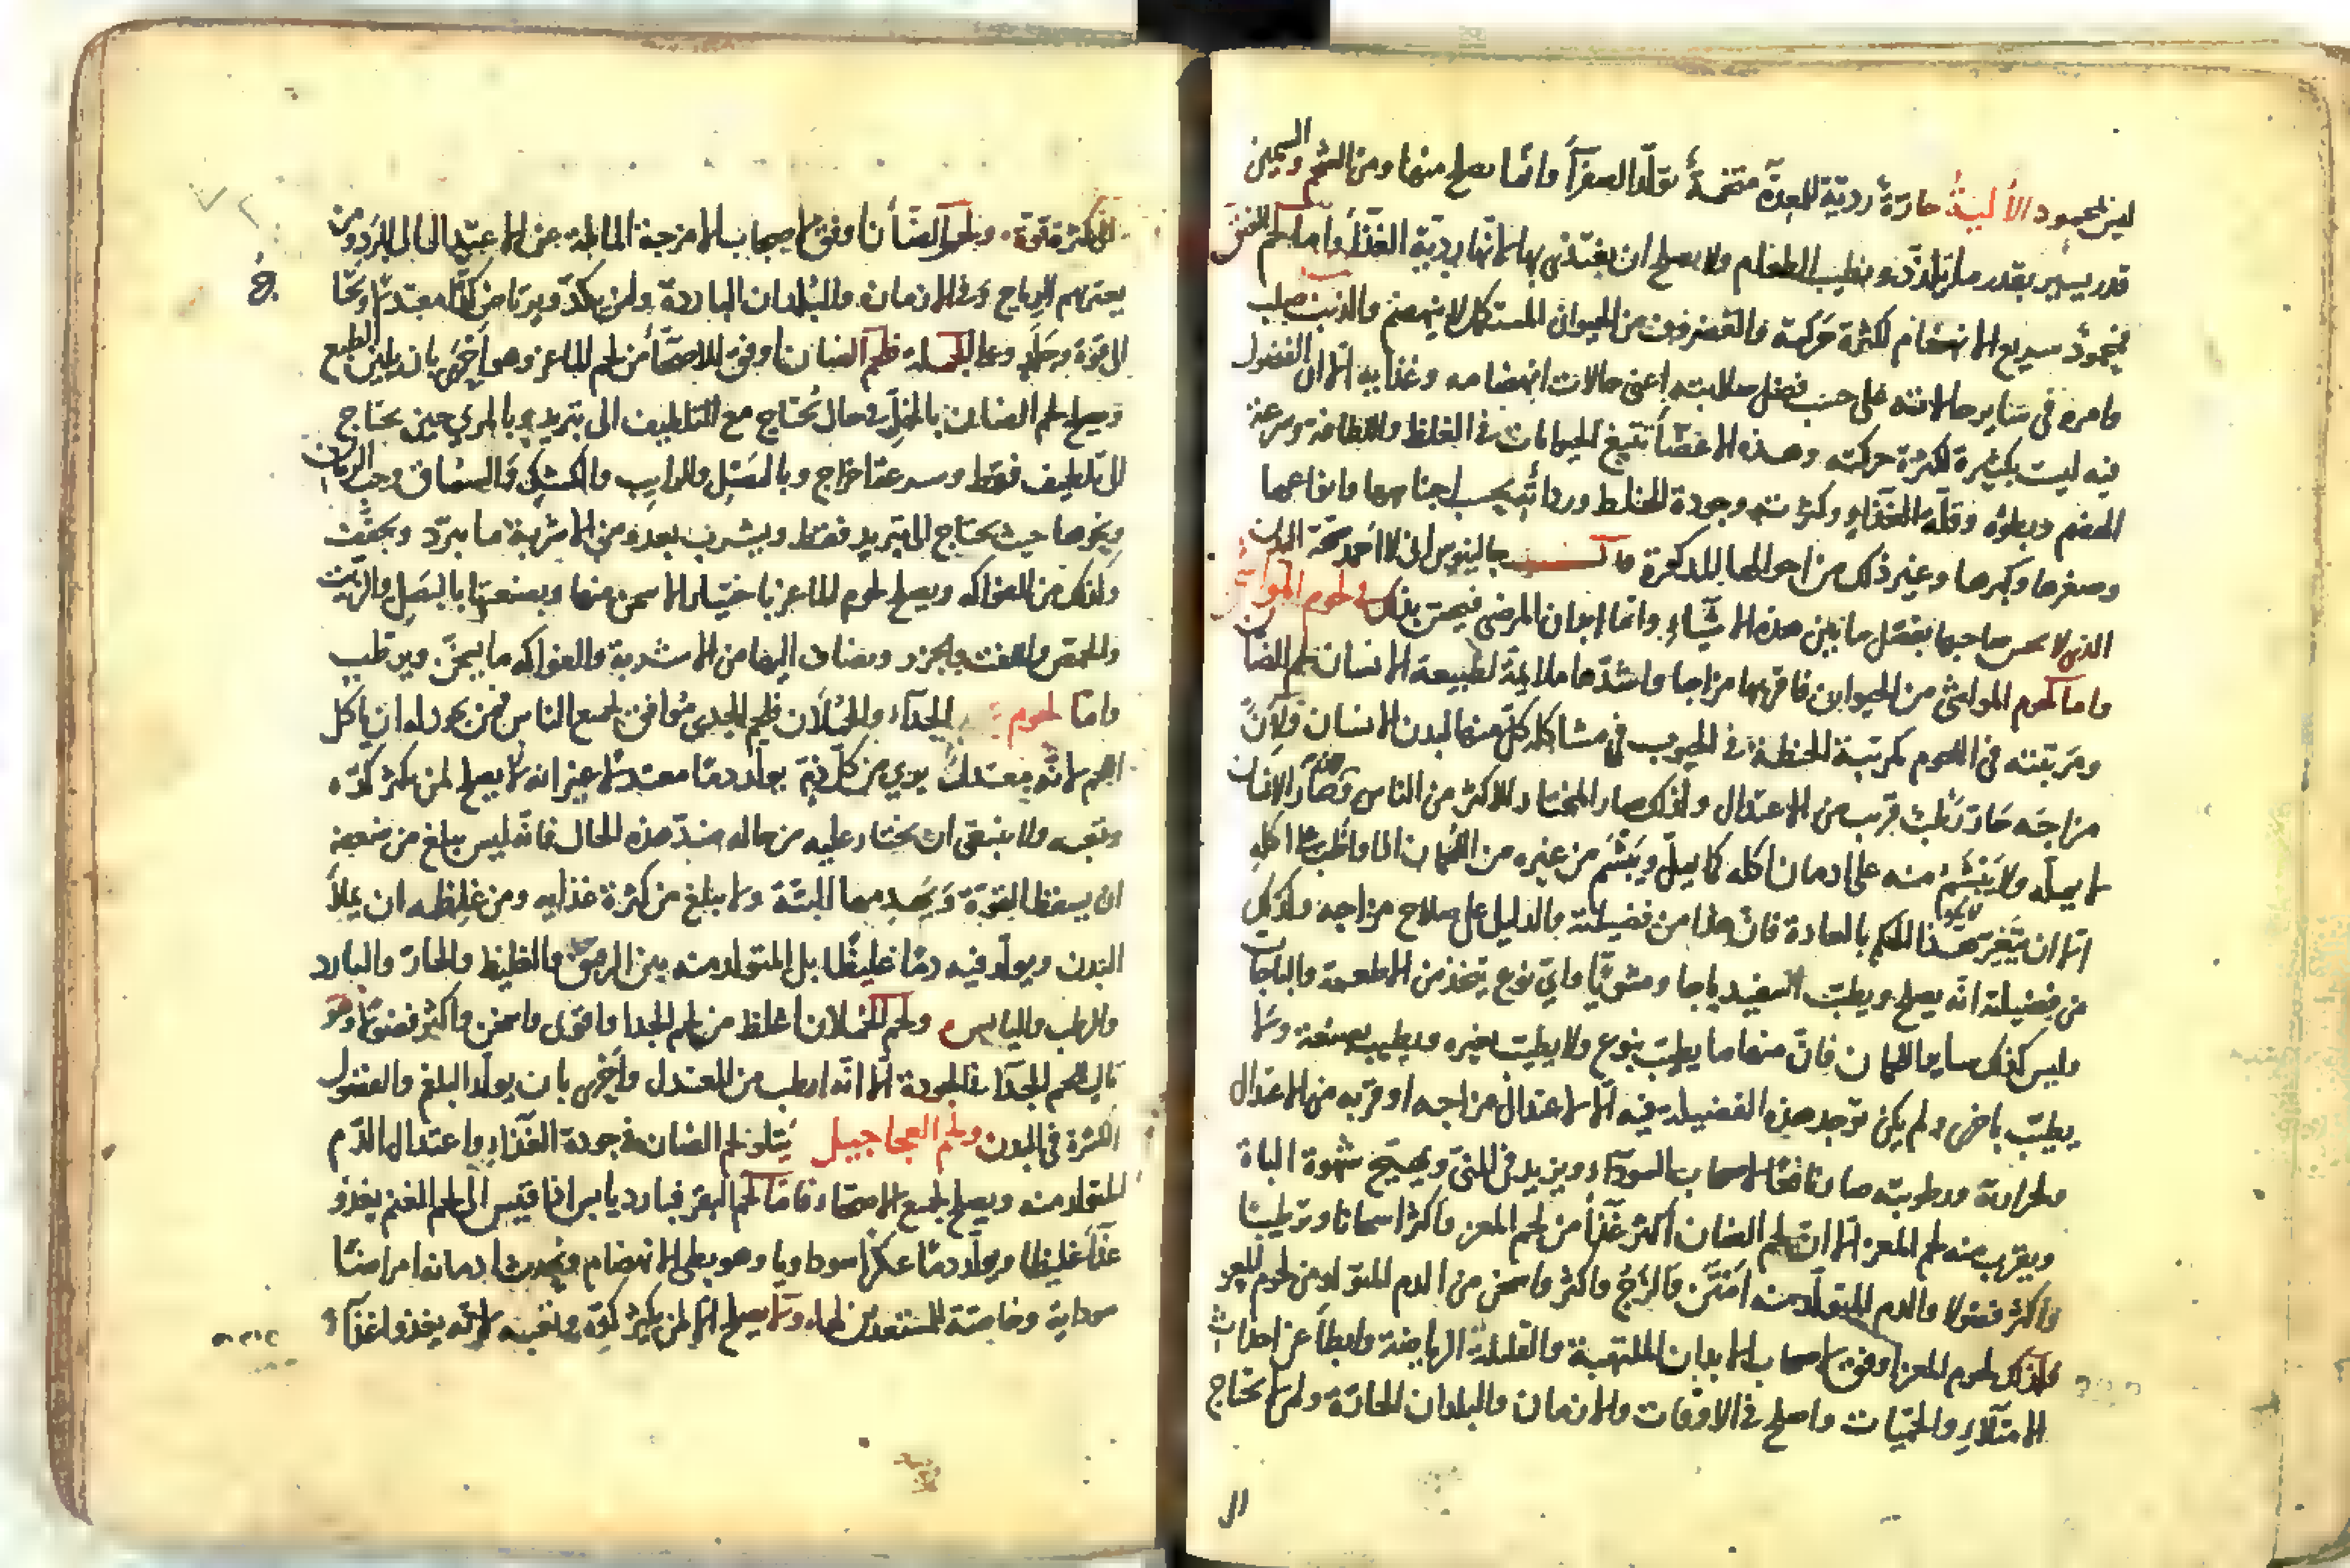 ليس بمحمود الألية حارّة رديّة للمعدة متخمة تولّد الصفراء وانّما يصلح منها ومن الشحم والسمين
قدر يسير بقدر ما يلذّذ ويطيب الطعام ولا يصلح ان يغتذى بها لانّها رديّة الغذاء واما لحم العنق
فمحمود سريع الانهضام لكثرة حركته والغضروف من الحيوان المستكمل لا ينهضم والذنب صلب
وامره في ساير حالاته على حسب فضل صلابته اعنى حالات انهضامه وغذايه الا ان الفضول
فيه ليست بكثيرة لكثرة حركته وهذه الاعضاء تتبع الحيوانات في الغلظ واللطافة وسرعة
الهضم وبطؤه وقلّة الغذاء وكثرته وجودة الخلط ورداءته بحسب اجناسها وانواعها
وصغرها وكبرها وغير ذلك من احوالها المذكرة جالينوس ان لا احد صحة البدن
الذى لا يحس صاحبها بفضل ما بين هذه الاشياء وانّما ابدان المرضى فيحس بذلك في لحوم المواشى
واما لحوم المواشى من الحيوان فاقربها مزاجا واشدّها ملايمة لطبيعة الانسان لحم الضان
ومرتبته في اللحوم كمرتبة الحنطة في الحبوب في مشاكله كل منهما لبدن الانسان ولانّ
مزاجه حار رطب قريب من الاعتدال ولذلك صار المختار للاكثر من الناس وصار الانسان
لا يملّه ولا يبشم منه على ادمان اكله كما يملّ ويبشم من غيره من اللحمان اذا واظب على اكله
الا ان يتغير هذا الحكم بالعادة فان هذا من فضيلته والدليل على صلاح مزاجه ولذلك
من فضيلته انّه يصلح ويطيب اسفيدباجا ومشويّا واى نوع يتخذ من الاطعمة والباجات
وليس كذلك ساير اللحمان فانّ منها ما يطيب بنوع ولا يطيب بغيره ويطيب بصنعة ولا
يطيب باخرى ولم يكن توجد هذه الفضيلة فيه الا لاعتدال مزاجه او قربه من الاعتدال
ولحرارته ورطوبته صار نافعا لاصحاب السوداء ويزيد في المنى ويهيّج شهوة الباة
ويقرب منه لحم المعز الا ان لحم الضان أكثر غذاء من لحم المعز واكثر اسخانا وترطيبا
واكثر فضولا والدم المتولّد منه امتن والزج واكثر واسخن من الدم المتولد من لحوم المعز
ولذلك لحوم المعز اوفق لاصحاب الابدان الملتهبة والقليلة الرياضة وابطأ عن احداث
الامتلاء والحميات واصلح في الاوقات والازمان والبلدان الحارّة ولمن لا يحتاج
ال
الى كثرة قوّة ولحوم الضأن اوفق لاصحاب الامزجة المايلة عن الاعتدال الى البرد ومن
يعتريهم الرياح وفي الازمان والبلدان الباردة ولمن يكدّ ويرتاض كدّا معتدلا ويحتاج
الى قوة وجلد وعلى الجملة فلحم الضان اوفق للاصحّاء من لحم الماعز وهو اخرى بان يلين الطبع
ويصلح لحم الضان بالخل في حال يحتاج مع التلطيف الى تبريد وبالمرى حين يحتاج
الى تلطيف فقط وسرعة اخراج وبالمصل والرايب والكشك والسماق وحب الرمان
ونحوها حيث يحتاج الى التبريد فقط ويشرب بعده من الاشربة ما يبرّد ويجفّف
وكذلك من الفواكه ويصلح لحوم الماعز باختيار الاسمن منها وبصنعتها بالبصل والزيت
والحمص واللفت والجزر ويضاف اليها من الاشربة والفواكه ما يسخّن ويرطب
وامّا لحوم الجداء والحملان فلحم الجدى موافق لجميع الناس ممن يجوز له ان ياكل
اللحم لانّه معتدل برى من كلّ ذمّ يولّد دما معتدلا غير انه لا يصلح لمن يكثر كدّه
وتعبه ولا ينبغى ان يختار عليه من حاله ضدّ هذه الحال فانّه ليس يبلغ من ضعفه
ان يسقط القوّة ويهدمها البتّة ولا يبلغ من كثرة غذايه ومن غلظه ان يملأ
البدن ويولّد فيه دمّا غليظا بل المتولد منه بين الرقيق والغليظ والحارّ والبارد
والرطب واليابس ولحم الحملان اغلظ من لحم الجدا واقوى واسخن واكثر فضولا وهو
تالى للحم الجداء في الجودة الا انّه ارطب من المعتدل واخرى بان يولّد البلغم والفضول
الكثرة في البدن ولحم العجاجيل يتلو لحم الضان في جودة الغذاء واعتدال الدّم
المتولد منه ويصلح لجميع الاصحّاء وامّا لحم البقر فبارد يابس اذا قيس الى لحم الغنم يغذو
غذاء غليظا ويولّد دمّا عكرا سوداويا وهو بطى الانهضام ويحدث ادمانه امراضا
سوداية وخاصّة للمستعدين لها ولا يصلح الا لمن يكثر كدّه وتعبه لانّه يغذو غذاء